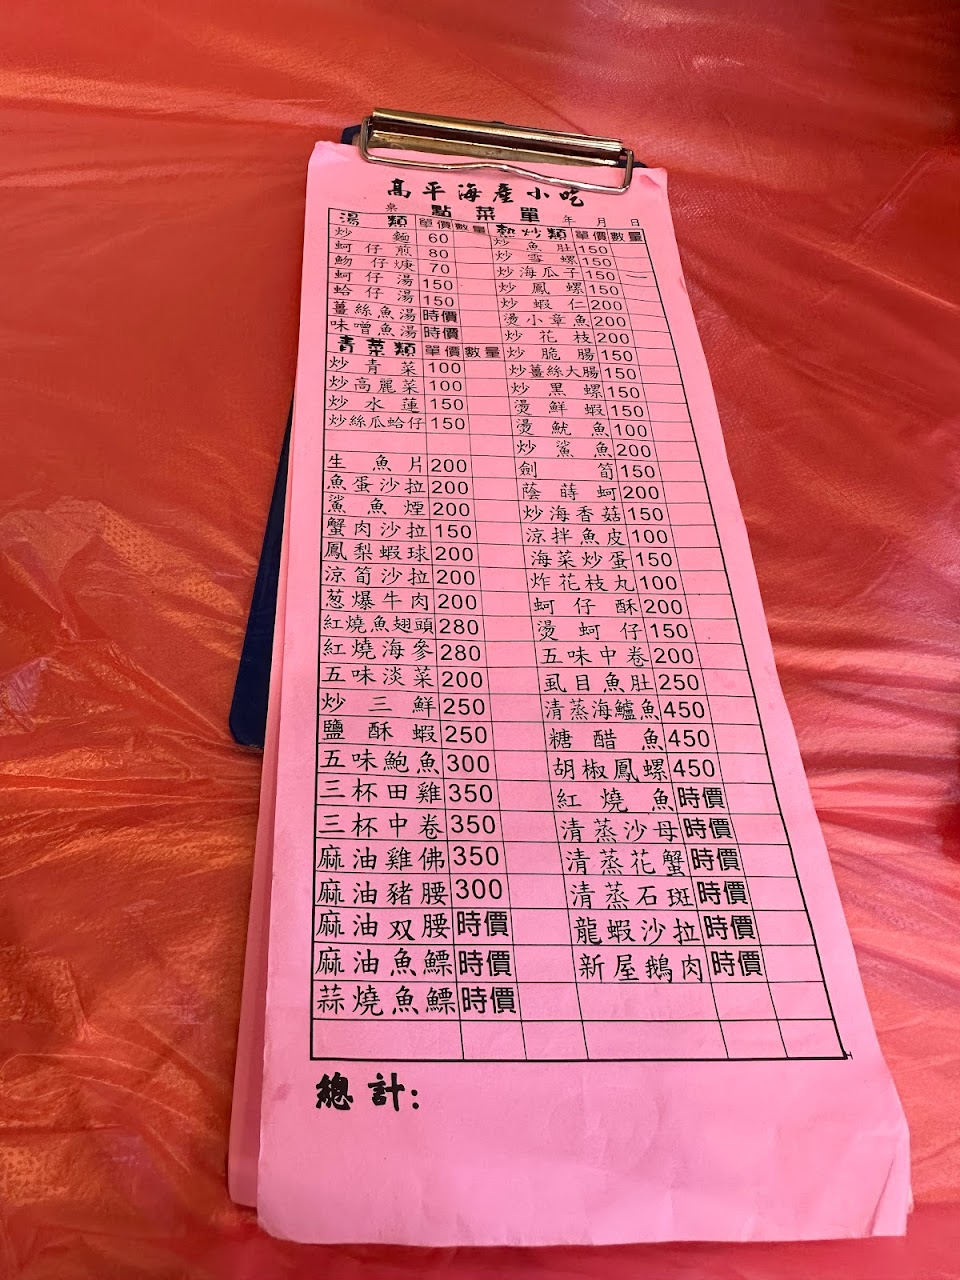 高平海產小吃
桌 點菜單 年 月 日
湯類 單價 數量 熱炒類 單價 數量
炒麵 60 炒魚肚 150
蚵仔煎 80 炒雪螺 150
魩仔焿 70 炒海瓜子 150
蚵仔湯 150 炒鳳螺 150
蛤仔湯 150 炒蝦仁 200
薑絲魚湯 時價 燙小章魚 200
味噌魚湯 時價 炒花枝 200
青菜類 單價 數量 炒脆腸 150
炒青菜 100 炒薑絲大腸 150
炒高麗菜 100 炒黑螺 150
炒水蓮 150 燙鮮蝦 150
炒絲瓜蛤仔 150 燙魷魚 100
炒鯊魚 200
生魚片 200 劍筍 150
魚蛋沙拉 200 蔭蒔蚵 200
鯊魚煙 200 炒海香菇 150
蟹肉沙拉 150 涼拌魚皮 100
鳳梨蝦球 200 海菜炒蛋 150
涼筍沙拉 200 炸花枝丸 100
葱爆牛肉 200 蚵仔酥 200
紅燒魚翅頭 280 燙蚵仔 150
紅燒海參 280 五味中卷 200
五味淡菜 200 虱目魚肚 250
炒三鮮 250 清蒸海鱸魚 450
鹽酥蝦 250 糖醋魚 450
五味鮑魚 300 胡椒鳳螺 450
三杯田雞 350 紅燒魚 時價
三杯中卷 350 清蒸沙母 時價
麻油雞佛 350 清蒸花蟹 時價
麻油豬腰 300 清蒸石斑 時價
麻油双腰 時價 龍蝦沙拉 時價
麻油魚鰾 時價 新屋鵝肉 時價
蒜燒魚鰾 時價
總計: